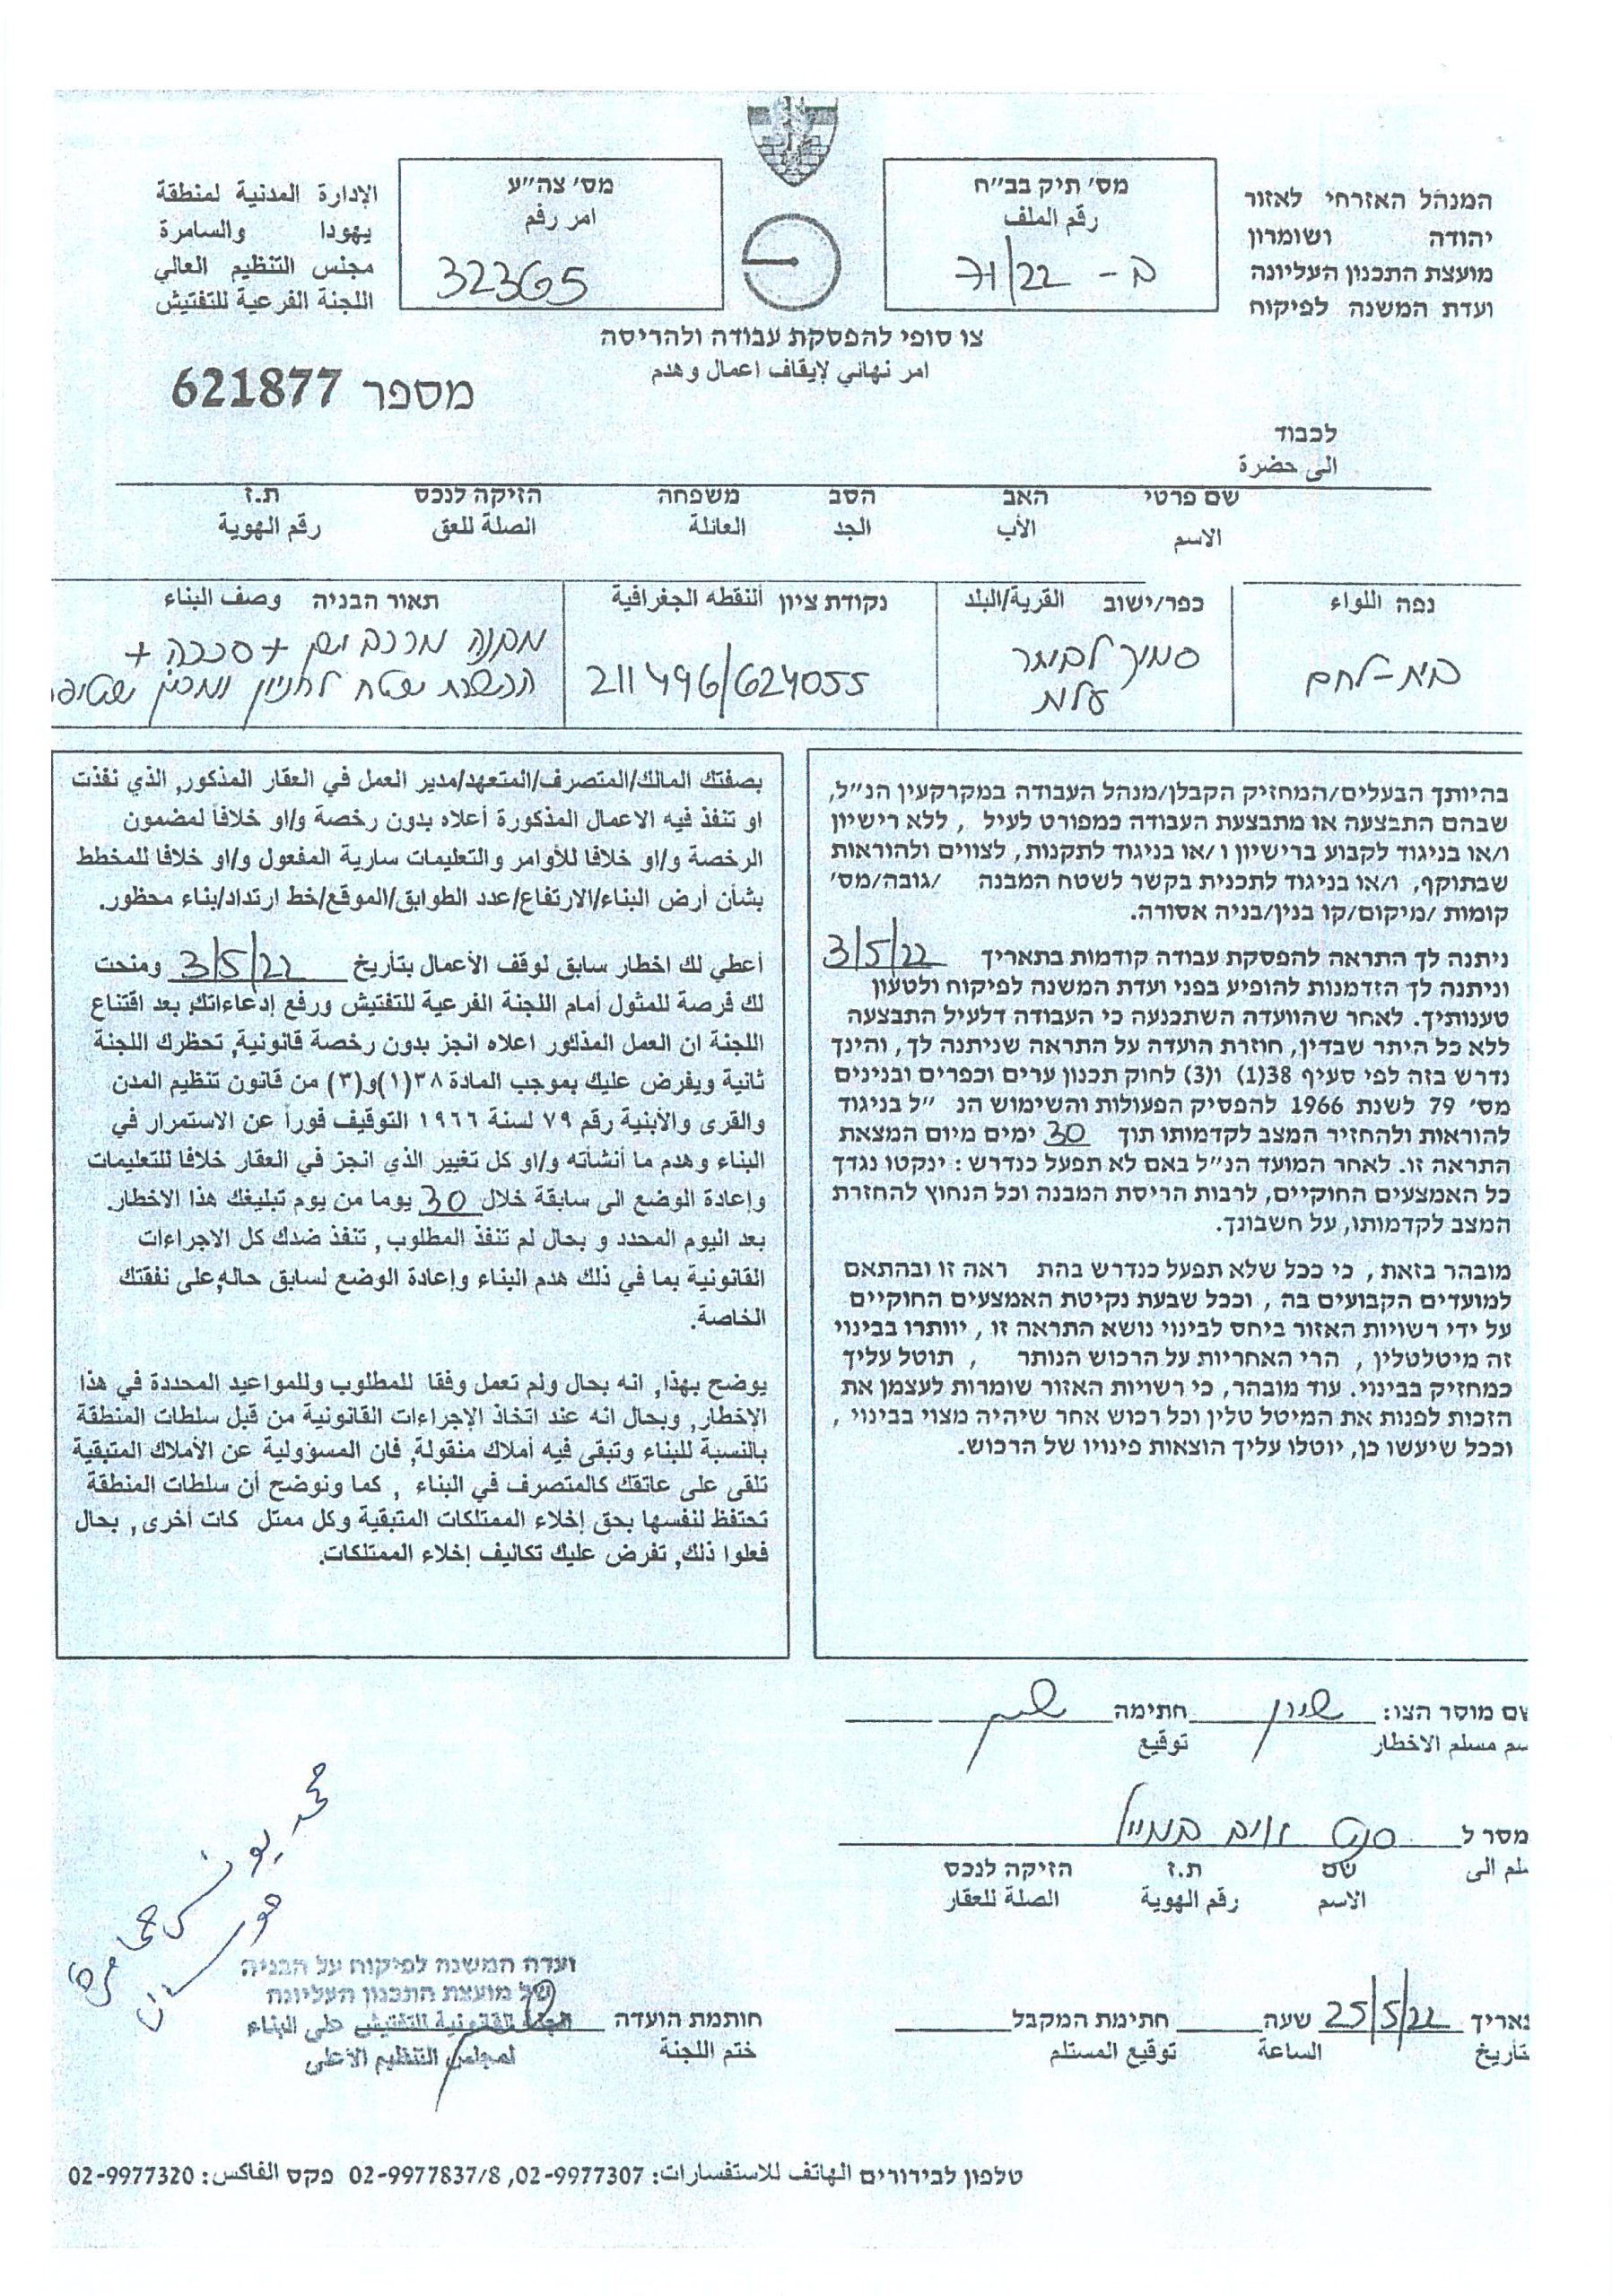 המנהל האזרחי לאזור
יהודה ושומרון
מועצת התכנון העליונה
ועדת המשנה לפיקוח
מס׳ תיק בב״ח
رقم الملف
ב - 71/22
מס׳ צה״ע
امر رقم
32365
الإدارة المدنية لمنطقة
يهودا والسامرة
مجلس التنظيم العالي
اللجنة الفرعية للتفتيش
צו סופי להפסקת עבודה ולהריסה
امر نهائي لايقاف اعمال وهدم
מספר 621877
לכבוד
الى حضرة
שם פרטי האב הסב משפחה הזיקה לנכס ת.ז
الاسم الأب الجد العائلة الصلة للعق رقم الهوية
נפה اللواء
בית-לחם
כפר/ישוב القرية/البلد
סמוך לביתר
עלית
נקודת ציון النقطه الجغرافية
211496/624055
תאור הבניה وصف البناء
מבנה + סככה +
הכשרת שטח לחניון
בהיותך הבעלים/המחזיק הקבלן/מנהל העבודה במקרקעין הנ״ל,
שבהם התבצעה או מתבצעת העבודה כמפורט לעיל , ללא רישיון
ו/או בניגוד לקבוע ברישיון ו /או בניגוד לתקנות, לצווים ולהוראות
שבתוקף, ו/או בניגוד לתכנית בקשר לשטח המבנה /גובה/מס׳
קומות /מיקום/קו בנין/בניה אסורה.
ניתנה לך התראה להפסקת עבודה קודמות בתאריך 3/5/22
וניתנה לך הזדמנות להופיע בפני ועדת המשנה לפיקוח ולטעון
טענותיך. לאחר שהוועדה השתכנעה כי העבודה דלעיל התבצעה
ללא כל היתר שבדין, חוזרת הועדה על התראה שניתנה לך, והינך
נדרש בזה לפי סעיף 38(1) ו(3) לחוק תכנון ערים וכפרים ובנינים
מס׳ 79 לשנת 1966 להפסיק הפעולות והשימוש הנ ״ל בניגוד
להוראות ולהחזיר המצב לקדמותו תוך 30 ימים מיום המצאת
התראה זו. לאחר המועד הנ״ל באם לא תפעל כנדרש : ינקטו נגדך
כל האמצעים החוקיים, לרבות הריסת המבנה וכל הנחוץ להחזרת
המצב לקדמותו, על חשבונך.
מובהר בזאת , כי ככל שלא תפעל כנדרש בהת ראה זו ובהתאם
למועדים הקבועים בה , וככל שבעת נקיטת האמצעים החוקיים
על ידי רשויות האזור ביחס לבינוי נושא התראה זו , יוותרו בבינוי
זה מיטלטלין , הרי האחריות על הרכוש הנותר , תוטל עליך
כמחזיק בבינוי. עוד מובהר, כי רשויות האזור שומרות לעצמן את
הזכות לפנות את המיטל טלין וכל רכוש אחר שיהיה מצוי בבינוי ,
וככל שיעשו כן, יוטלו עליך הוצאות פינויו של הרכוש.
بصفتك المالك/المتصرف/المتعهد/مدير العمل في العقار المذكور, الذي نفذت
او تنفذ فيه الاعمال المذكورة أعلاه بدون رخصة و/او خلافاً لمضمون
الرخصة و/او خلافا للأوامر والتعليمات سارية المفعول و/او خلافا للمخطط
بشأن أرض البناء/الارتفاع/عدد الطوابق/الموقع/خط ارتداد/بناء محظور.
أعطي لك اخطار سابق لوقف الأعمال بتأريخ 3/5/22 ومنحت
لك فرصة للمثول أمام اللجنة الفرعية للتفتيش ورفع إدعاءاتك. بعد اقتناع
اللجنة ان العمل المذكور اعلاه انجز بدون رخصة قانونية, تحظرك اللجنة
ثانية ويفرض عليك بموجب المادة ٣٨(١)و(٣) من قانون تنظيم المدن
والقرى والأبنية رقم ٧٩ لسنة ١٩٦٦ التوقيف فوراً عن الاستمرار في
البناء وهدم ما أنشأته و/او كل تغيير الذي انجز في العقار خلافا للتعليمات
وإعادة الوضع الى سابقة خلال 30 يوما من يوم تبليغك هذا الاخطار.
بعد اليوم المحدد و بحال لم تنفذ المطلوب, تنفذ ضدك كل الاجراءات
القانونية بما في ذلك هدم البناء وإعادة الوضع لسابق حاله, على نفقتك
الخاصة.
يوضح بهذا, انه بحال ولم تعمل وفقا للمطلوب وللمواعيد المحددة في هذا
الإخطار, وبحال انه عند اتخاذ الإجراءات القانونية من قبل سلطات المنطقة
بالنسبة للبناء وتبقى فيه أملاك منقولة, فان المسؤولية عن الأملاك المتبقية
تلقى على عاتقك كالمتصرف في البناء , كما ونوضح أن سلطات المنطقة
تحتفظ لنفسها بحق إخلاء الممتلكات المتبقية وكل ممتل كات أخرى, بحال
فعلوا ذلك, تفرض عليك تكاليف إخلاء الممتلكات.
שם מוסר הצו: חתימה
سم مسلم الاخطار توقيع
מסר ל
لم الى
שם ת.ז הזיקה לנכס
الاسم رقم الهوية الصلة للعقار
תאריך 25/5/22 שעה חתימת המקבל חותמת הועדה
تاريخ الساعة توقيع المستلم ختم اللجنة
ועדת המשנה לפיקוח על הבניה
של מועצת התכנון העליונה
اللجنة القانونية للتفتيش على البناء
لمجلس التنظيم الأعلى
טלפון לבירורים الهاتف للاستفسارات: 02-9977307, 02-9977837/8 פקס الفاكس: 02-9977320